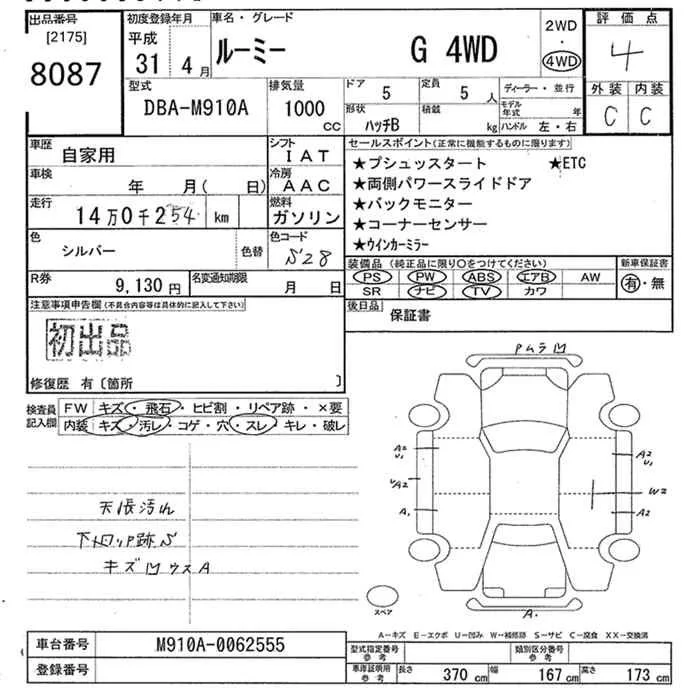 出品番号 [2175] 8087
初度登録年月 平成 31 4月
車名・グレード ルーミー G 4WD
2WD・4WD
評価点 4
型式 DBA-M910A
排気量 1000 cc
ドア 5
定員 5 人
形状 ハッチB
積載 kg
ディーラー・並行
モデル年式 年
ハンドル 左・右
外装 C
内装 C
車歴 自家用
シフト IAT
車検 年 月( 日)
冷房 AAC
走行 14万0千254 km
燃料 ガソリン
色 シルバー
色替
色コード S28
R券 9,130円
名変通知期限 月 日
セールスポイント(正常に機能するものに限ります)
★プシュッスタート ★ETC
★両側パワースライドドア
★バックモニター
★コーナーセンサー
★ウインカーミラー
装備品(純正品に限り○をつけてください)
PS PW ABS エアB AW
SR ナビ TV カワ
新車保証書 有・無
後日品 保証書
注意事項申告欄(不具合内容等は具体的に記入して下さい)
初出品
修復歴 有〔箇所 〕
検査員記入欄
FW キズ・飛石・ヒビ割・リペア跡・×要
内装 キズ・汚レ・コゲ・穴・スレ・キレ・破レ
天張汚れ
キズ凹ウスA
Pムラ凹
A2 U1
A2
A1
A2 U1
W2
A2
A.
スペア
A―キズ E―エクボ U―凹み W―補修跡 S―サビ C―腐食 XX―交換済
車台番号 M910A-0062555
登録番号
型式指定番号 参考
類別区分番号 参考
車庫証明用 参考
長さ 370 cm 幅 167 cm 高さ 173 cm